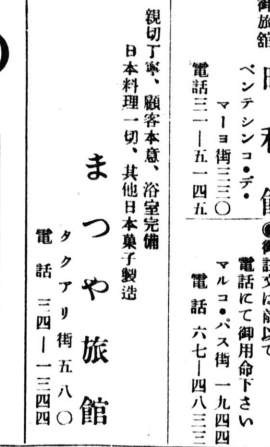 御旅館
昭和館
ベンテシンコ・デ・
マーヨ街三三〇
電話三一—五一四五
電話にて御用命下さい
マルコ・パス街 一九四四
電話 六七—四八三三
親切丁寧、顧客本意、浴室完備
日本料理一切、其他日本菓子製造
まつや旅館
タクアリ街五八〇
電話 三四—一三四四